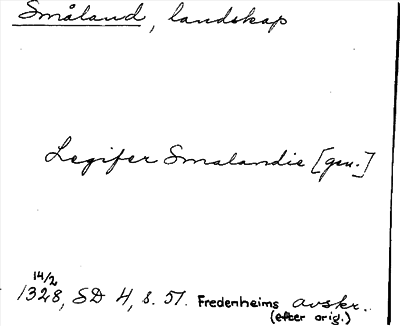 Småland, landskap
Legifer Smalandie [gen.]
14/2
1328, SD 4, s. 51. Fredenheims avskr.
(efter orig.)